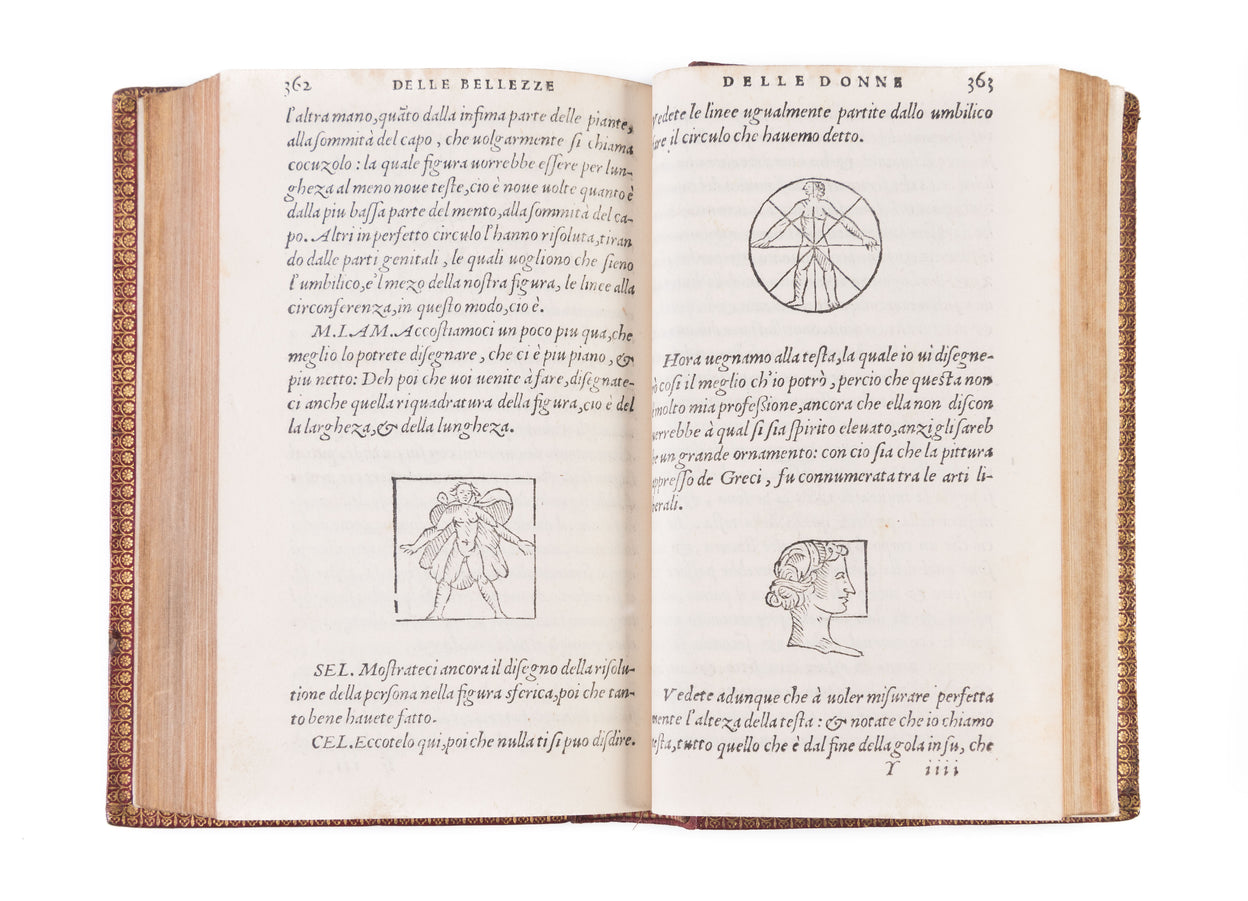 362 DELLE BELLEZZE
l'altra mano, quãto dalla infima parte delle piante,
alla sommità del capo, che uolgarmente si chiama
cocuzolo: la quale figura uorrebbe essere per lun-
gheza al meno noue teste, cio è noue uolte quanto è
dalla piu bassa parte del mento, alla sommità del ca-
po. Altri in perfetto circulo l'hanno risoluta, tiran
do dalle parti genitali, le quali uogliono che sieno
l'umbilico, e'l mezo della nostra figura, le linee alla
circonferenza, in questo modo, cio è.
M. LAM. Accostiamoci un poco piu qua, che
meglio lo potrete disegnare, che ci è piu piano, &
piu netto: Deh poi che uoi uenite à fare, disegnate-
ci anche quella riquadratura della figura, cio è del
la largheza, & della lungheza.
SEL. Mostrateci ancora il disegno della risolu-
tione della persona nella figura sferica, poi che tan-
to bene hauete fatto.
CEL. Eccotelo qui, poi che nulla ti si puo disdire.
DELLE DONNE 363
vedete le linee ugualmente partite dallo umbilico
fare il circulo che hauemo detto.
Hora uegnamo alla testa, la quale io ui disegne-
rò cosi il meglio ch'io potrò, percio che questa non
è molto mia professione, ancora che ella non discon
uerrebbe à qual si sia spirito eleuato, anzi gli sareb
be un grande ornamento: con cio sia che la pittura
appresso de Greci, fu connumerata tra le arti li-
berali.
Vedete adunque che à uoler misurare perfetta
mente l'alteza della testa: & notate che io chiamo
testa, tutto quello che è dal fine della gola in su, che
Y iiii